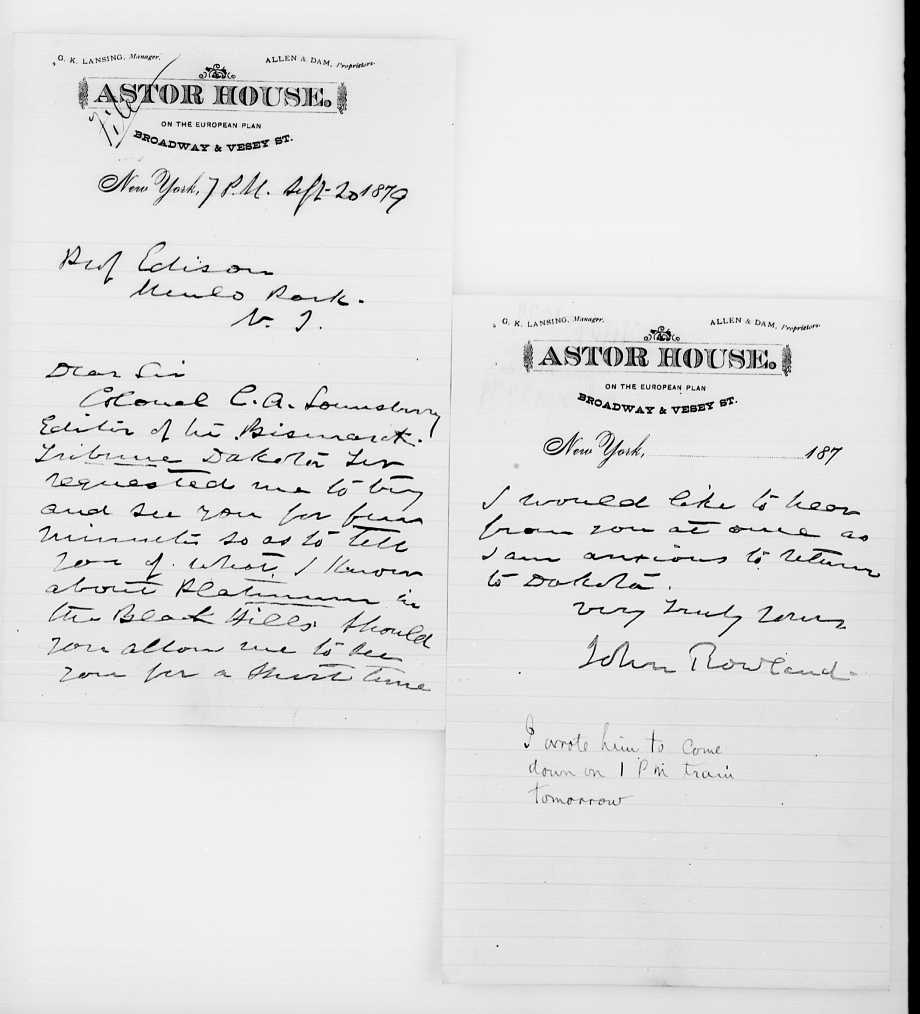 G. K. LANSING, Manager. ALLEN & DAM, Proprietors.
ASTOR HOUSE.
File
ON THE EUROPEAN PLAN
BROADWAY & VESEY ST.
New York, 7 P.M. Sept 20 1879
Prof Edison
Menlo Park.
N. J.
Dear Sir
Colonel C. A. Lounsberry
Editor of the Bismarck.
Tribune Dakota Ter
requested me to try
and see you for few
minnets so as to tell
you of what I know
about Platinum in
the Black Hills. Should
you allow me to see
you for a short time
G. K. LANSING, Manager. ALLEN & DAM, Proprietors.
ASTOR HOUSE.
ON THE EUROPEAN PLAN
BROADWAY & VESEY ST.
New York, 187
I would like to hear
from you at once as
I am anxious to return
to Dakota.
very truly yours
John Rowland
I wrote him to come
down on 1 PM train
tomorrow